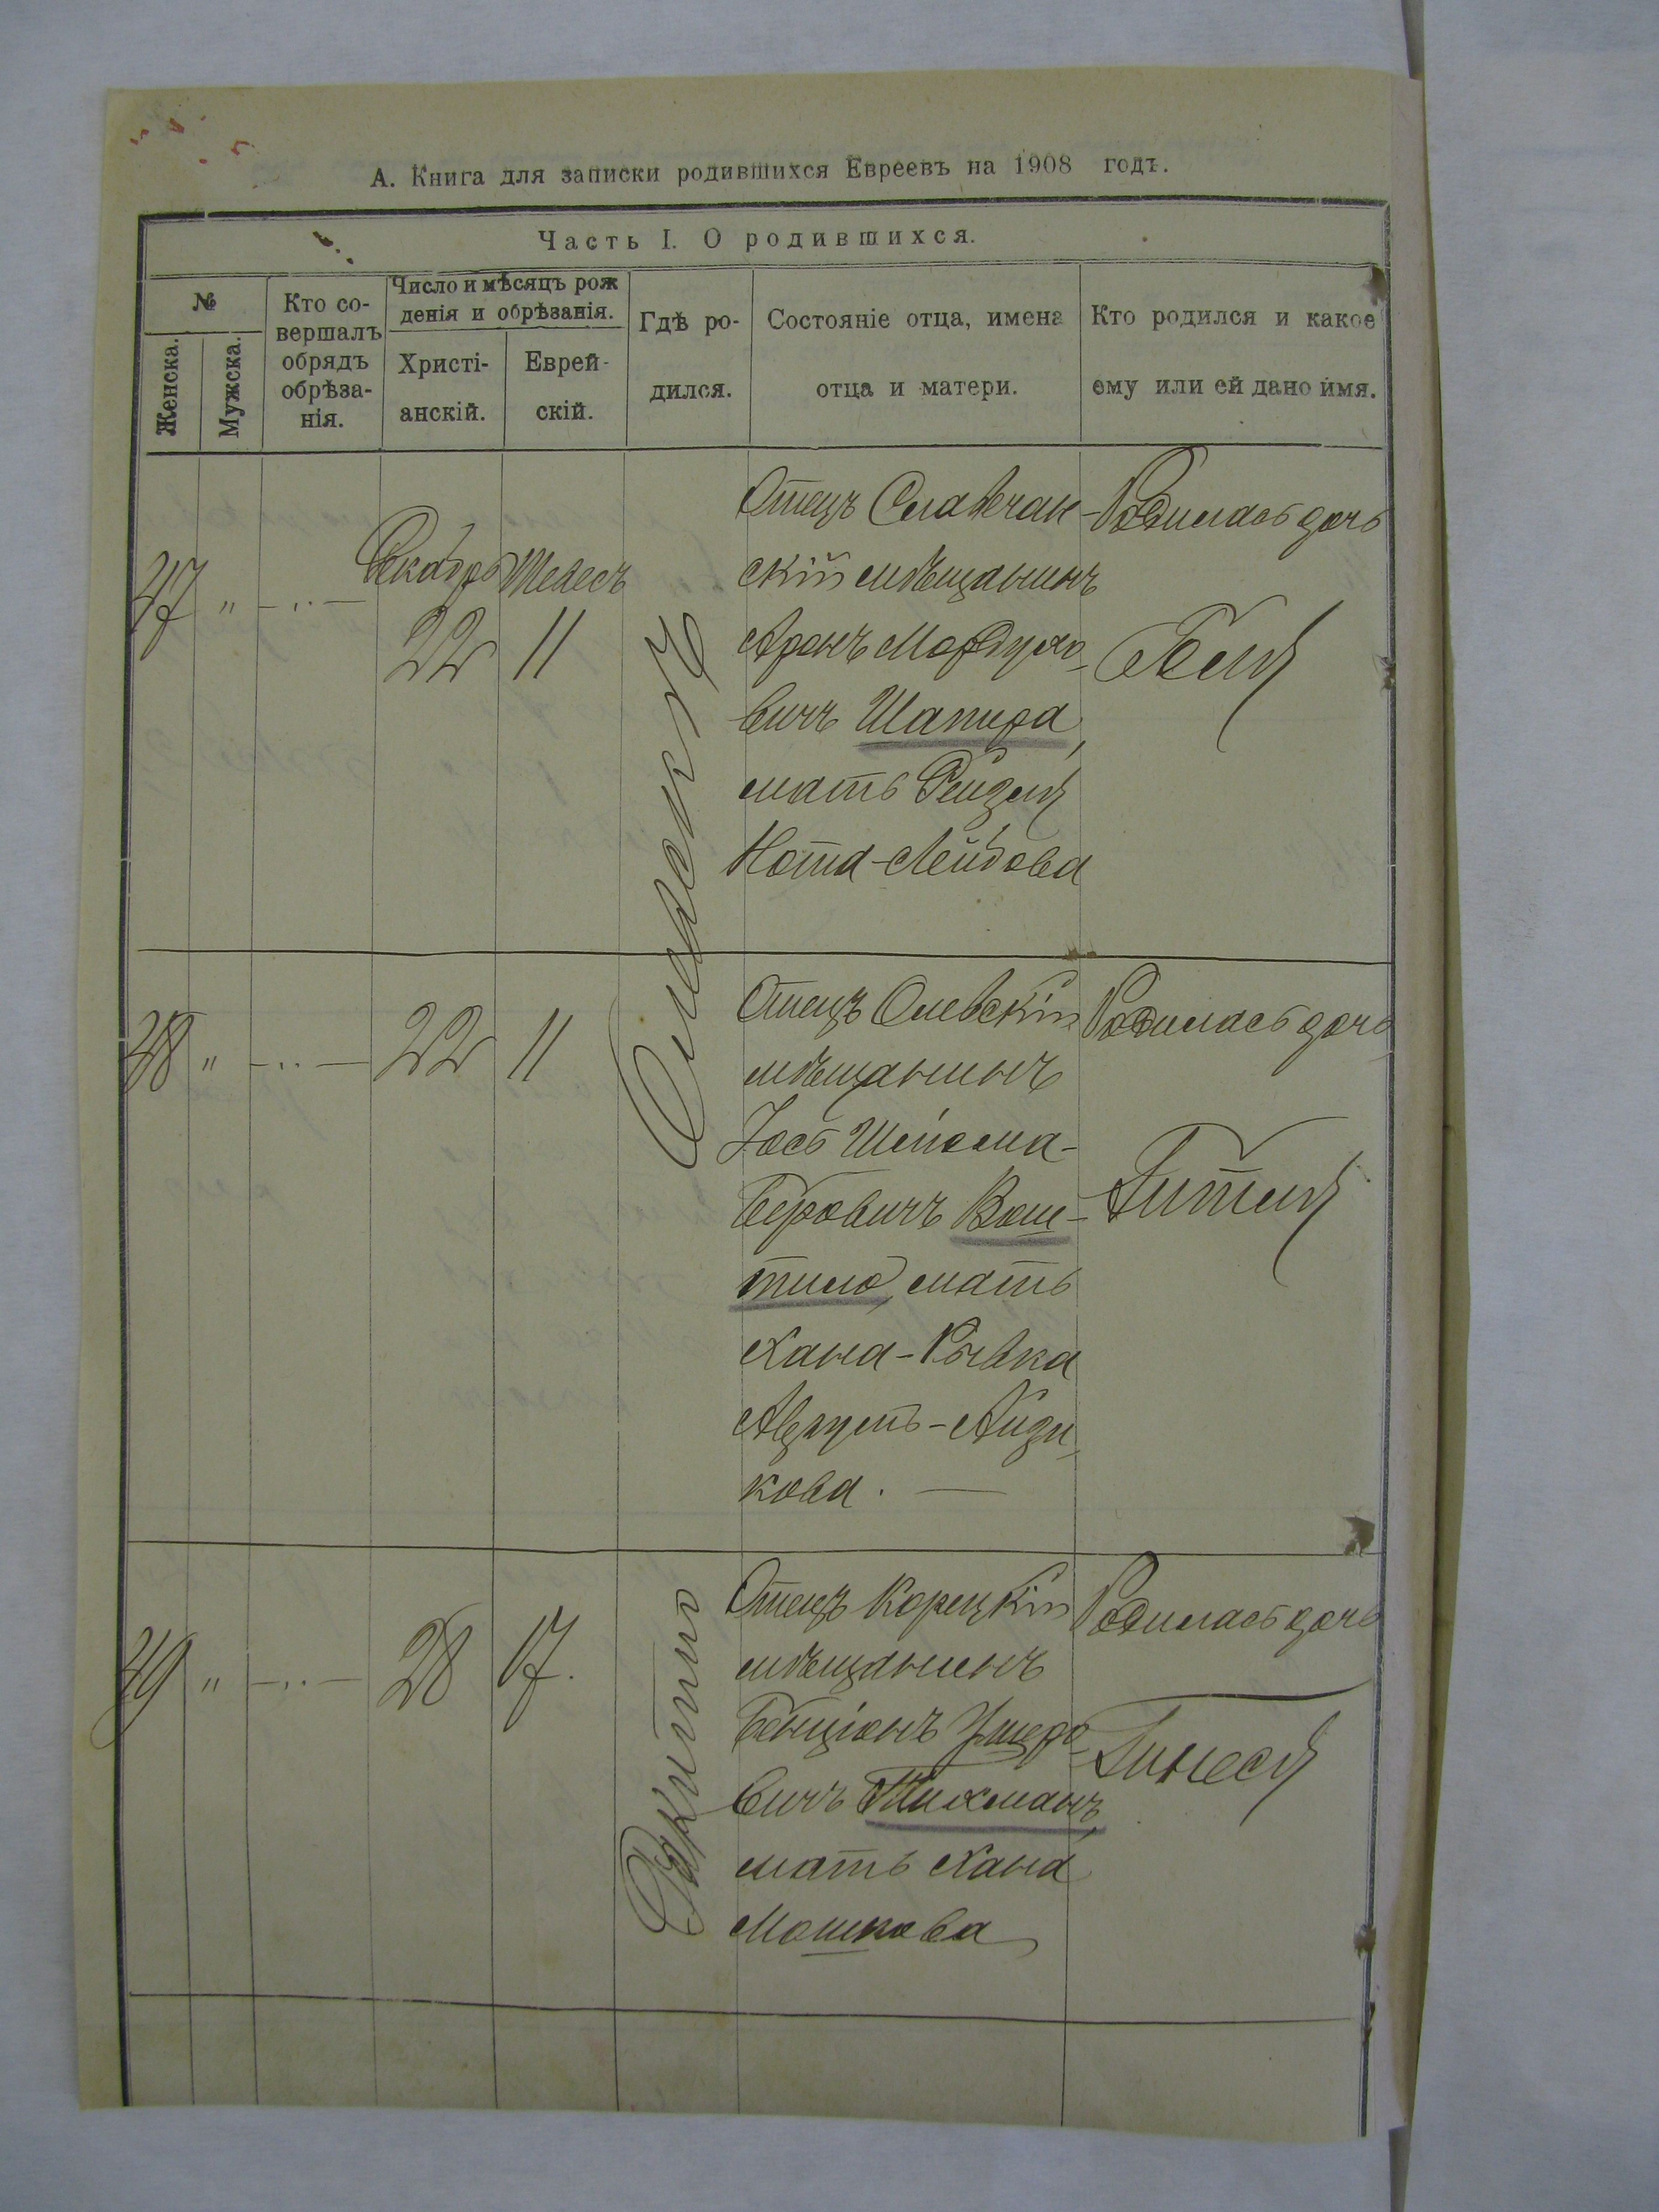 А. Книга для записки родившихся Евреевъ на 1908 годъ.
Часть I. О родившихся.
№
Женска.
Мужска.
Кто со-
вершалъ
обрядъ
обрѣза-
нія.
Число и мѣсяцъ рож
денія и обрѣзанія.
Христі-
анскій.
Еврей-
скій.
Гдѣ ро-
дился.
Состояніе отца, имена
отца и матери.
Кто родился и какое
ему или ей дано имя.
47 " - ".. -
Декабрь
22
11
Олевскъ
Отецъ Славечан-
скій мѣщанинъ
Аронъ Мордухо-
вичъ Шапира,
мать Рейзля
Нота-Лейбова
Родилась дочь
48 " - ".. - 22 11
Отецъ Олевскій
мѣщанинъ
Іось Шлиома-
Беровичъ Вош-
тило, мать
Хана-Рывка
Айзи
кова. —
Родилась дочь
Гитля
49 " - ".. - 28 17.
Ракитно
Отецъ Корецкій
мѣщанинъ
Бенціонъ Ушеро
вичъ Тихманъ,
мать Хана
Мошкова
Родилась дочь
Гинеся